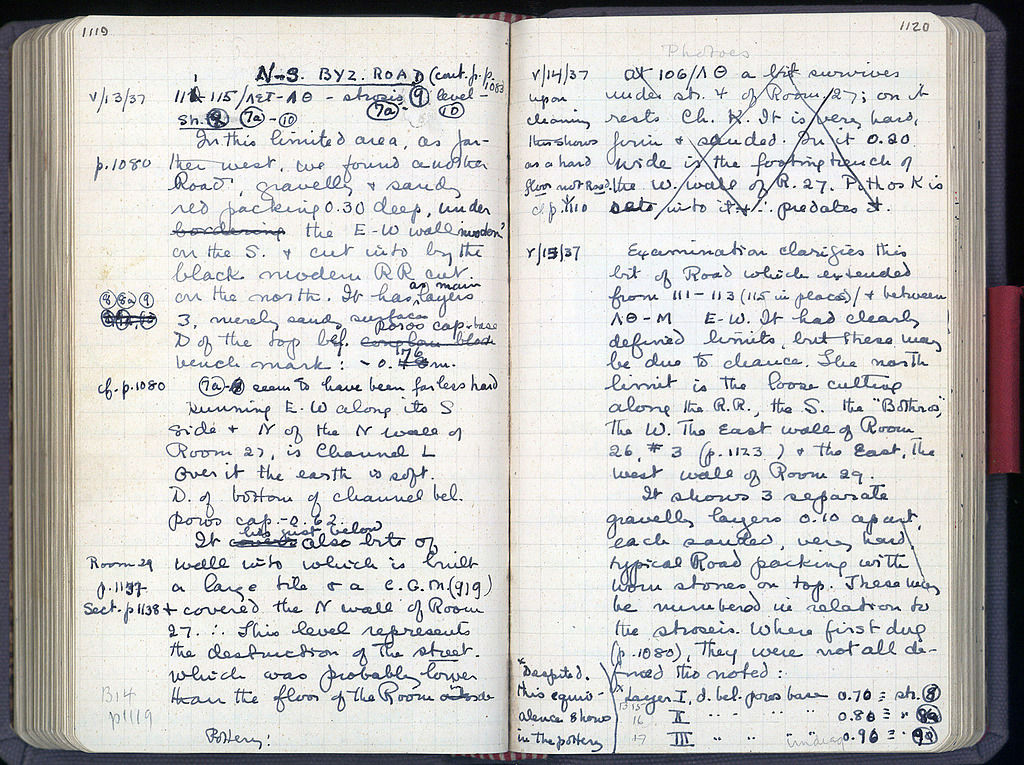 1119
N-S. BYZ. ROAD (cont. p. p. 1083
V/13/37 111-115/ΛΣΤ-ΛΘ - strosis (9) level -
(7a)- (10)
sh. (8) (7a) - (10)
In this limited area, as far-
p.1080 ther west, we found another
Road, gravelly & sandy
red packing 0.30 deep, under
bordering the E-W wall modern
on the S. & cut into by the
black modern RR cut.
on the north. It has as many layers
(8) (8a) (9)
3, merely sandy surface
D of the top bel. poros cap-base
bench mark: -0.76 m.
cf. p.1080 (7a- seem to have been far less hard
Running E-W along its S
side & N of the N wall of
Room 27, is Channel L
Over it the earth is soft.
D. of bottom of channel bel.
poros cap -0.62.
It lies just below also bits of
Room 29 wall into which is built
p.1137 a large tile & a C.G.M (919)
Sect. p 1138 & covered the N wall of Room
27. ∴ This level represents
the destruction of the street.
which was probably lower
than the floor of the Room
B14
p1119
Pottery:
1120
Photoes
V/14/37 at 106/ΛΘ a bit survives
upon under str. 4 of Room 27; on it
cleaning rests Ch. K. It is very hard,
this shows firm & sanded. In it 0.20
as a hard wide is the footing trench of
floor not Road. the W. wall of R. 27. Pithos K is
cf. p. 1110 sets into it ∴ predates it.
V/15/37 Examination clarifies this
bit of Road which extended
from 111-113 (115 in places)/ & between
ΛΘ-M E-W. It had clearly
defined limits, but these may
be due to chance. The north
limit is the loose cutting
along the R.R., the S. the "Bothros",
the W. The East wall of Room
26, # 3 (p.1123) & the East, the
west wall of Room 29.
It shows 3 separate
gravelly layers 0.10 apart,
each sanded, very hard
typical Road packing with
worn stones on top. These may
be numbered in relation to
the stroseis. Where first dug
(p.1080), They were not all de-
fined this noted:
*Despited.
this equiv-
alence shows
in the pottery
*layer I, d. bel. poros base 0.76 ≡ str. (8)
13 15
16 II " " " 0.86 ≡ " (8a)
17 III " " " 0.96 ≡ " (9a)